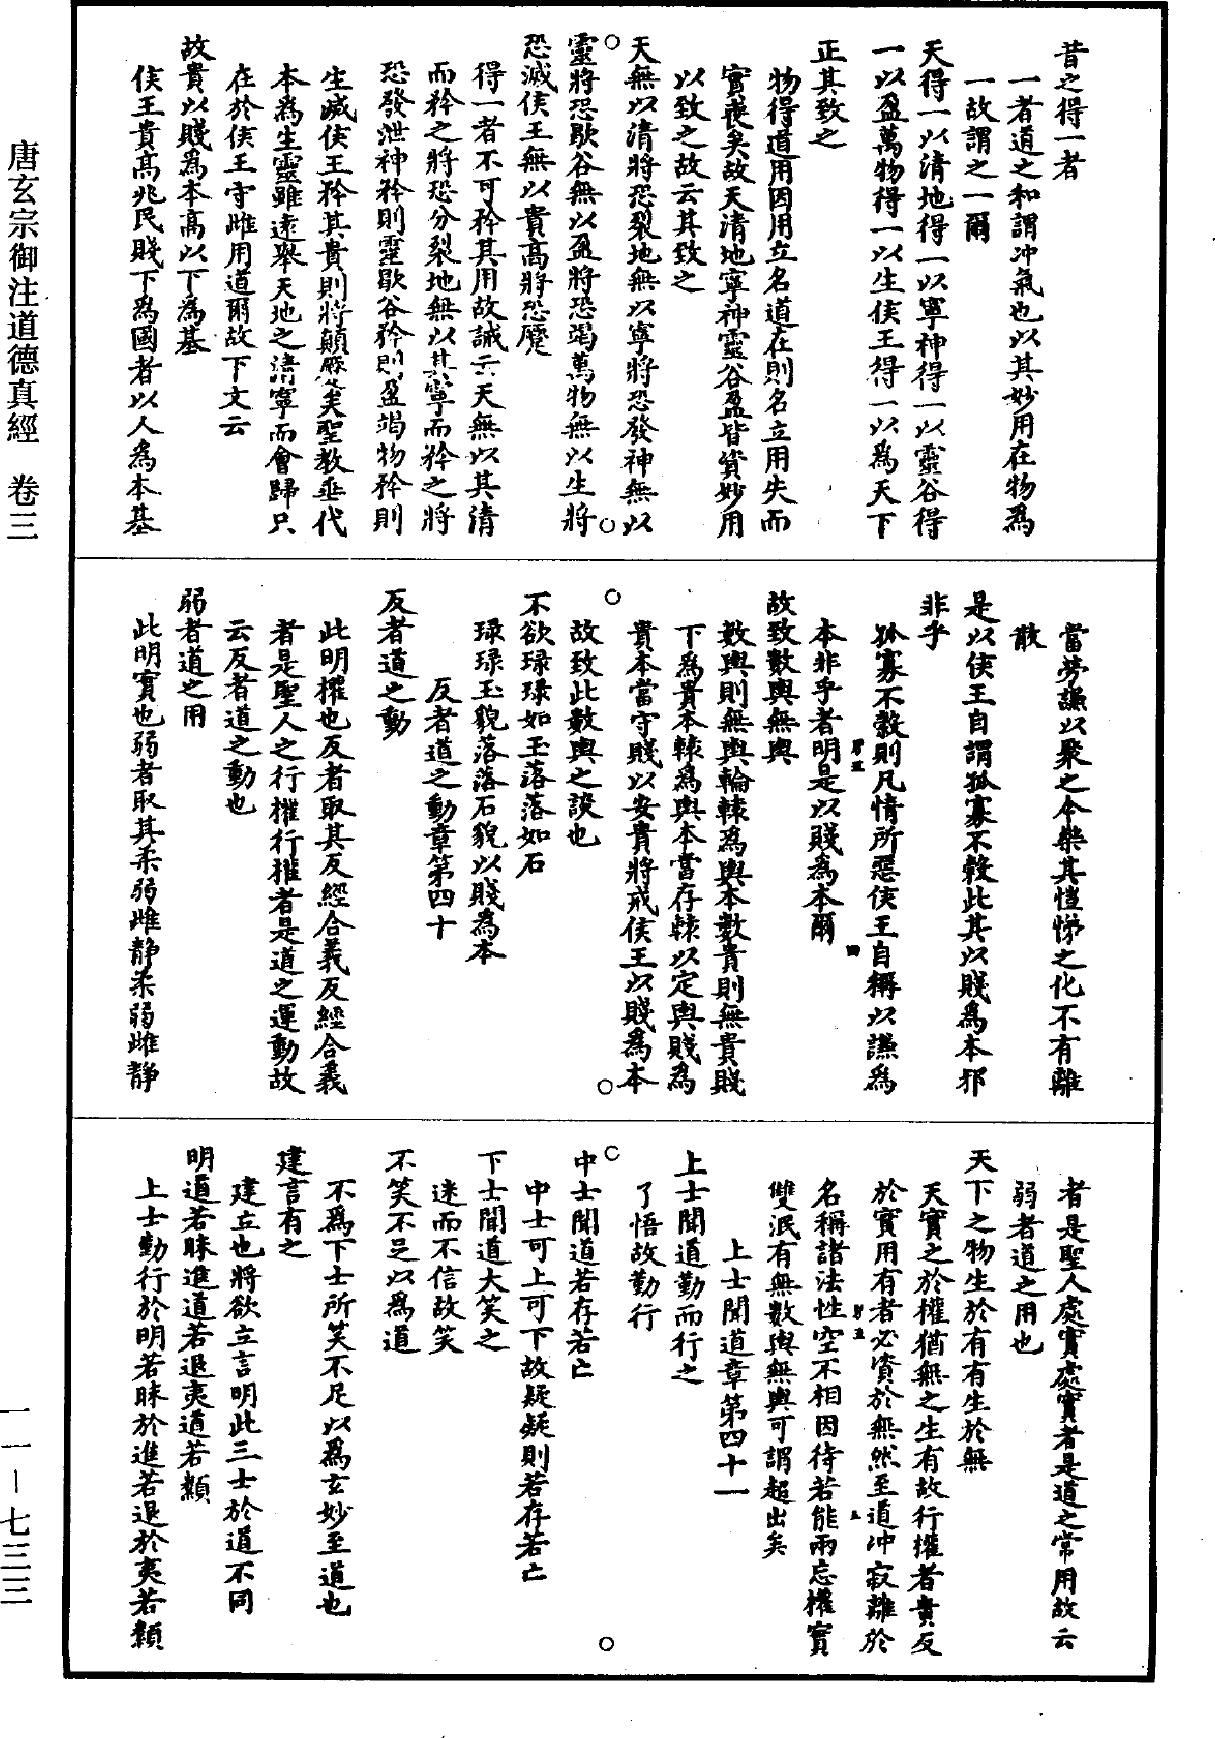 昔之得一者
一者道之和謂冲氣也以其妙用在物爲
一故謂之一爾
天得一以清地得一以寧神得一以靈谷得
一以盈萬物得一以生侯王得一以爲天下
正其致之
物得道用因用立名道在則名立用失而
實喪矣故天清地寧神靈谷盈皆資妙用
以致之故云其致之
天無以清將恐裂地無以寧將恐發神無以
靈將恐歇谷無以盈將恐竭萬物無以生將
恐滅侯王無以貴高將恐蹷
得一者不可矜其用故誡云天無以其清
而矜之將恐分裂地無以其寧而矜之將
恐發泄神矜則靈歇谷矜則盈竭物矜則
生滅侯王矜其貴則將顛蹷矣聖教垂代
本爲生靈雖遠舉天地之清寧而會歸只
在於侯王守雌用道爾故下文云
故貴以賤爲本高以下爲基
侯王貴高兆民賤下爲國者以人爲本基
當勞謙以聚之令樂其愷悌之化不有離
散
是以侯王自謂孤寡不轂此其以賤爲本邪
非乎
孤寡不轂則凡情所惡侯王自稱以謙爲
本非乎者明是以賤爲本爾
故致數輿無輿
數輿則無輿輪轅爲輿本數貴則無貴賤
下爲貴本轅爲輿本當存轅以定輿賤爲
貴本當守賤以安貴將戒侯王以賤爲本
故致此數輿之談也
不欲琭琭如玉落落如石
琭琭玉貌落落石貌以賤爲本
反者道之動章第四十
反者道之動
此明權也反者取其反經合義反經合義
者是聖人之行權行權者是道之運動故
云反者道之動也
弱者道之用
此明實也弱者取其柔弱雌靜柔弱雌靜
者是聖人處實處實者是道之常用故云
弱者道之用也
天下之物生於有有生於無
天實之於權猶無之生有故行權者貴反
於實用有者必資於無然至道冲寂離於
名稱諸法性空不相因待若能兩忘權實
雙泯有無數輿無輿可謂超出矣
上士聞道章第四十一
上士聞道勤而行之
了悟故勤行
中士聞道若存若亡
中士可上可下故疑疑則若存若亡
下士聞道大笑之
迷而不信故笑
不笑不足以爲道
不爲下士所笑不足以爲玄妙至道也
建言有之
建立也將欲立言明此三士於道不同
明道若昧進道若退夷道若纇
上士勤行於明若昧於進若退於夷若纇
唐玄宗御注道德真經　卷三
一一－七三三